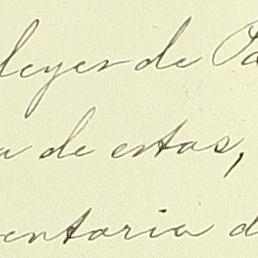 leyes de Pa
a de estas,
entaria d